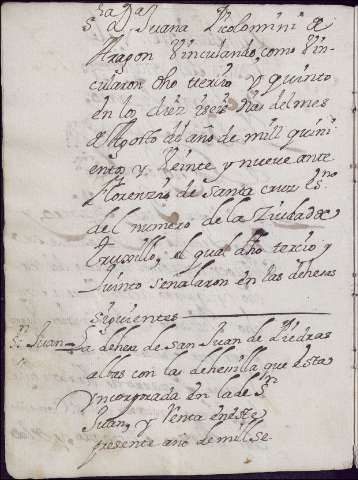 s.ra D.a Juana Picolomini de
Aragon Vinculando, como Vin-
cularon dho tercio y quinto
en los diez y seis dias del mes
de Agosto del año de mill quini-
entos y Veinte y nueve ante
Florenzio de santa cruz es.no
del numero de la Ziudad de
truxillo, el qual dho tercio y
quinto señalaron en las dehesas
siguientes
S.n Juan = La dehesa de san Juan de Piedras
albas con la dehesilla que esta
yncorporada en la de S.n
Juan, y Renta en este
presente año de mill se-